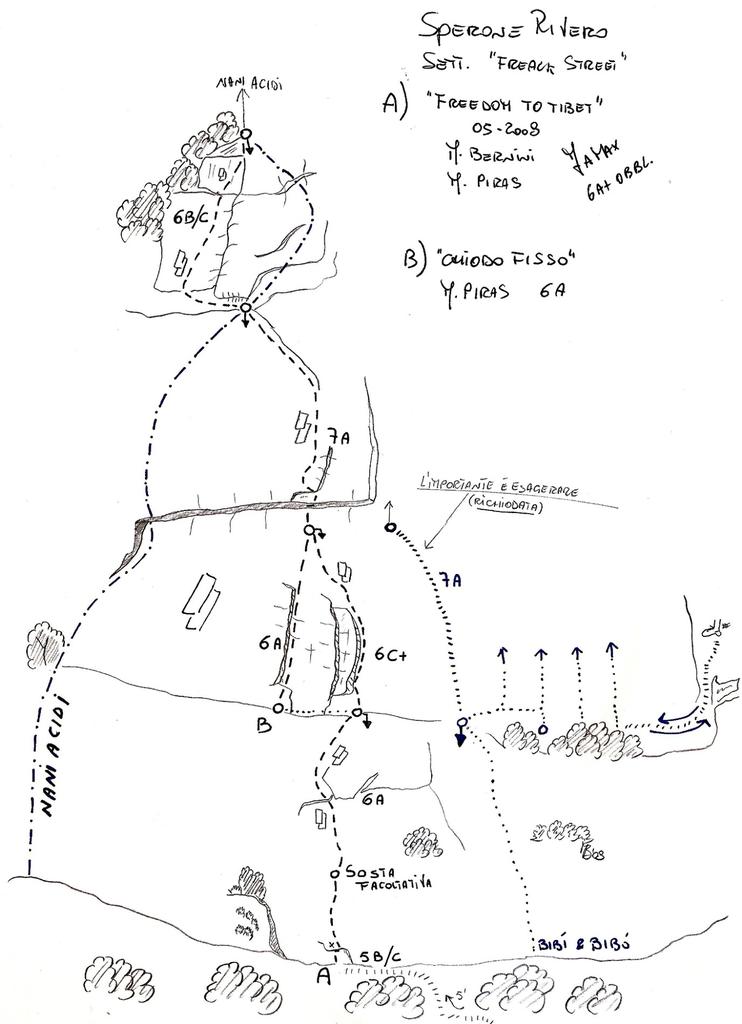 SPERONE RIVERO
SETT. "FREACK STREET"
A) "FREEDOM TO TIBET"
05-2008
M. BERNINI
M. PIRAS
6A+ OBBL.
B) "CHIODO FISSO"
M. PIRAS 6A
NANI ACIDI
6B/C
7A
L'IMPORTANTE È ESAGERARE
(RICHIODATA)
7A
6A
6C+
B
NANI ACIDI
6A
SOSTA
FACOLTATIVA
BIBÍ & BIBÓ
5B/C
A
5'